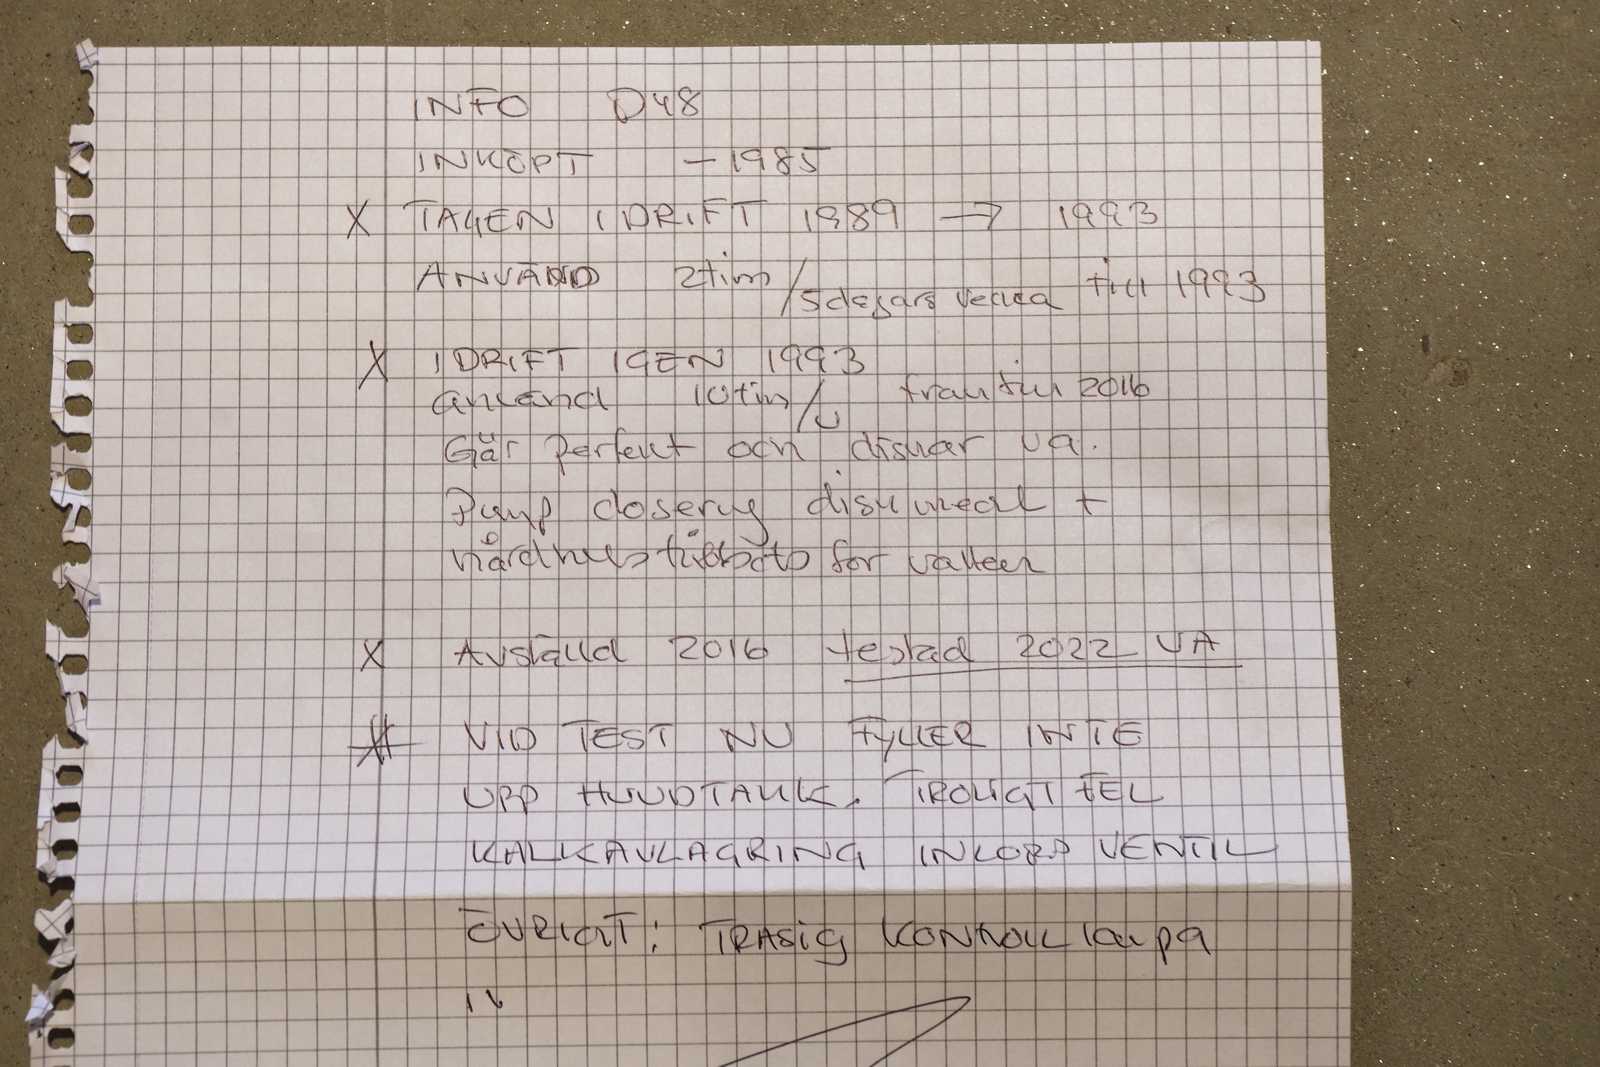 INFO D48
INKÖPT - 1985
X TAGEN I DRIFT 1989 → 1993
ANVÄND 2tim/5dagars vecka till 1993
X I DRIFT IGEN 1993
använd 10tim/v fram till 2016
Går perfekt och diskar va.
Pump dosering diskmedl +
hårdhets för vatten
X Avställd 2016 testad 2022 VA
X VID TEST NU FYLLER INTE
UPP HUVDTANK. TROLIGT FEL
KALKAVLAGRING INKOPP VENTIL
ÖVRIGT: TRASIG KONTROLL lampa